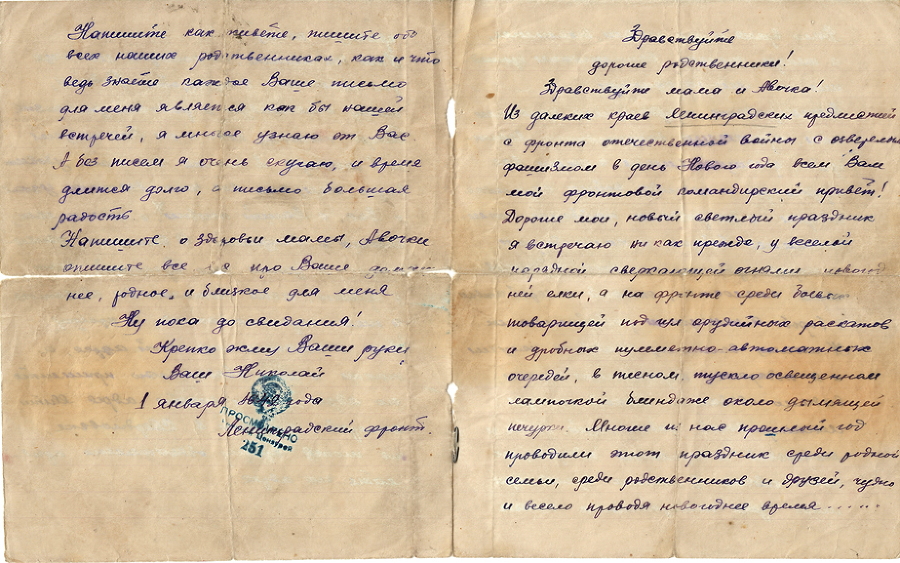 Напишите как живёте, пишите обо
всех наших родственниках, как и что
ведь знайте каждое Ваше письмо
для меня является как бы нашей
встречей, я многое узнаю от Вас
А без писем я очень скучаю, и время
длится долго, а письмо большая
радость
Напишите о здоровьи мамы, Авочки
опишите все про Ваше
нее, родное и близкое для меня
Ну пока до свидания!
Крепко жму Ваши руки
Ваш Николай
1 января 1942 года
Ленинградский фронт
ПРОСМОТРЕНО
Цензурой
251
Здравствуйте
дорогие родственники!
Здравствуйте мама и Авочка!
Из далеких краев Ленинградских предместий
с фронта отечественной войны с озверелым
фашизмом в день Нового года всем Вам
мой фронтовой командирский привет!
Дорогие мои, новый светлый праздник
я встречаю не как прежде, у веселой
нарядной сверкающей огнями
ней елки, а на фронте среди
товарищей под гул орудийных раскатов
и дробных пулеметно-автоматных
очередей, в тесном тускло освещенном
лампочкой блиндаже около дымящей
печурки. Многие из нас прошлый год
проводили этот праздник среди родной
семьи, среди родственников и друзей, чудно
и весело проводя новогоднее время......